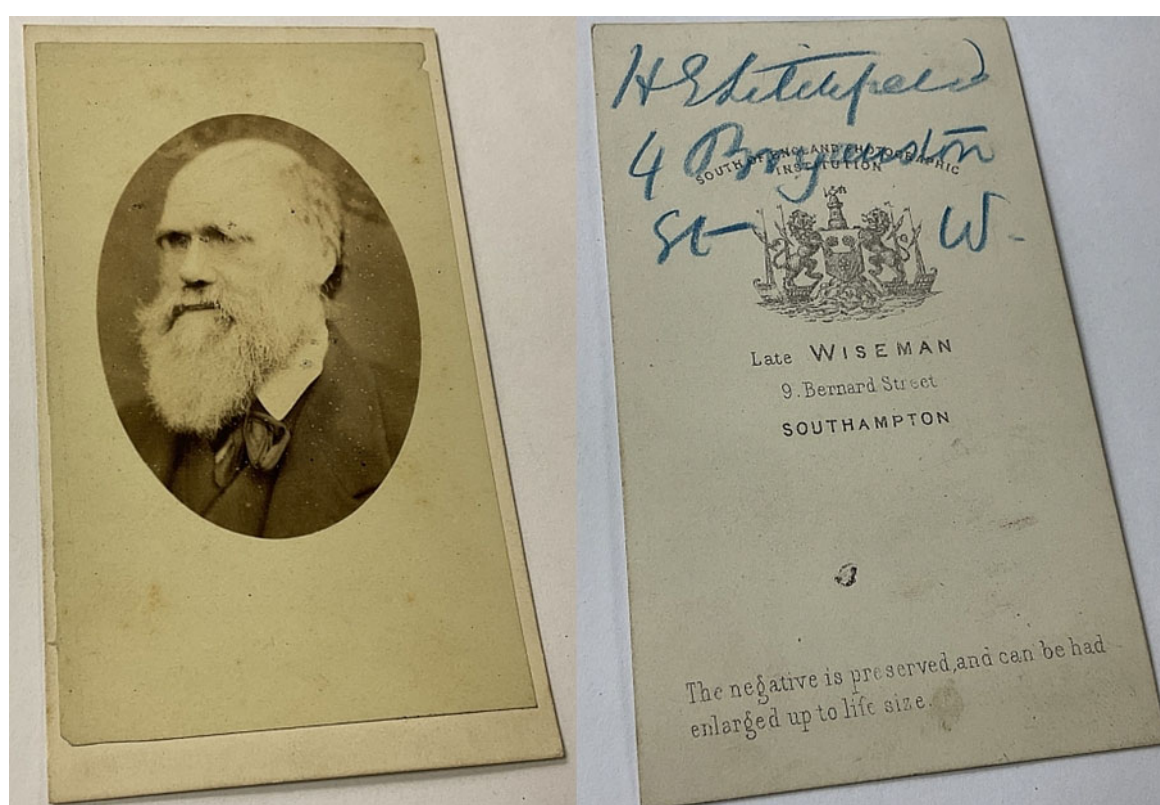 H E Litchfield
4 Bryanston
St W.
SOUTH OF ENGLAND PHOTOGRAPHIC
INSTITUTION
Late WISEMAN
9. Bernard Street
SOUTHAMPTON
The negative is preserved, and can be had
enlarged up to life size.